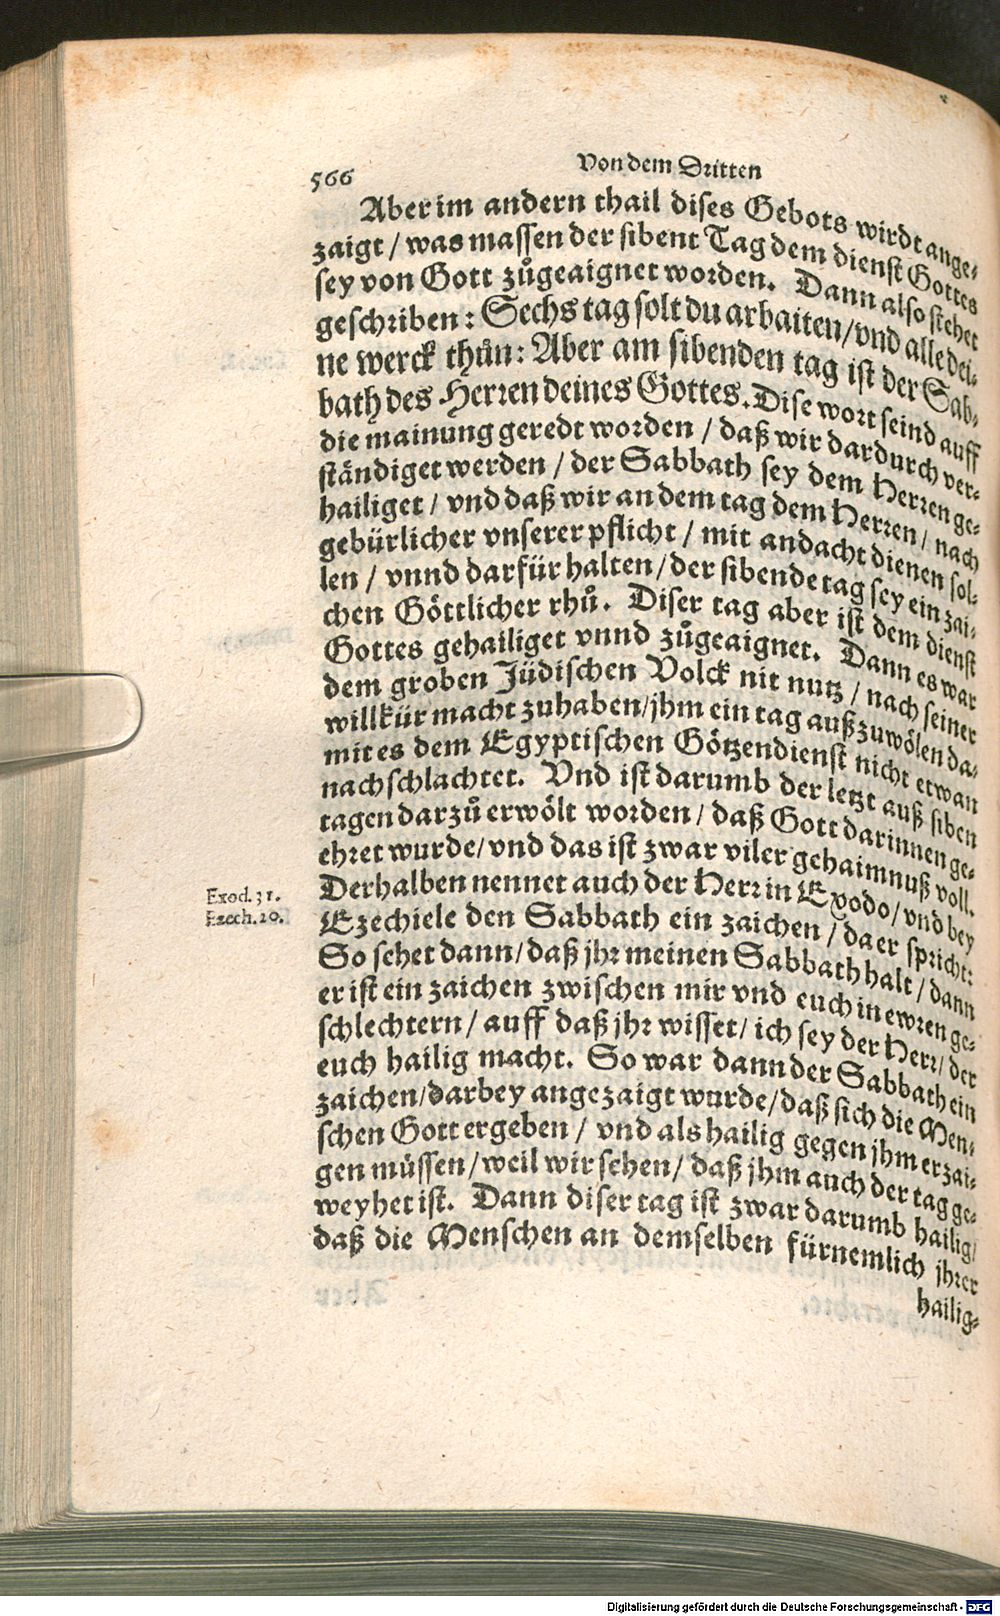 566
Von dem Dritten
Aber im andern thail dises Gebots wirdt ange-
zaigt / was massen der sibent Tag dem dienst Gottes
sey von Gott zůgeaignet worden. Dann also stehet
geschriben: Sechs tag solt du arbaiten / vnd alle dei-
ne werck thůn: Aber am sibenden tag ist der Sab-
bath des Herren deines Gottes. Dise wort seind auff
die mainung geredt worden / daß wir dardurch ver-
ständiget werden / der Sabbath sey dem Herren ge-
hailiget / vnd daß wir an dem tag dem Herren / nach
gebürlicher vnserer pflicht / mit andacht dienen sol-
len / vnnd darfür halten / der sibende tag sey ein zai-
chen Göttlicher rhů. Diser tag aber ist dem dienst
Gottes gehailiget vnnd zůgeaignet. Dann es war
dem groben Jüdischen Volck nit nutz / nach seiner
willkür macht zuhaben / jhm ein tag außzuwölen da-
mit es dem Egyptischen Götzendienst nicht etwan
nachschlachtet. Vnd ist darumb der letzt auß siben
tagen darzů erwölt worden / daß Gott darinnen ge-
ehret wurde / vnd das ist zwar viler gehaimnuß voll.
Derhalben nennet auch der Herr in Exodo / vnd bey
Exod. 31.
Ezech. 20.
Ezechiele den Sabbath ein zaichen / da er spricht:
So sehet dann / daß jhr meinen Sabbath halt / dann
er ist ein zaichen zwischen mir vnd euch in ewren ge-
schlechtern / auff daß jhr wisset / ich sey der Herr / der
euch hailig macht. So war dann der Sabbath ein
zaichen / darbey angezaigt wurde / daß sich die Men-
schen Gott ergeben / vnd als hailig gegen jhm erzai-
gen müssen / weil wir sehen / daß jhm auch der tag ge-
weyhet ist. Dann diser tag ist zwar darumb hailig /
daß die Menschen an demselben fürnemlich jhrer
hailig-
Digitalisierung gefördert durch die Deutsche Forschungsgemeinschaft - DFG